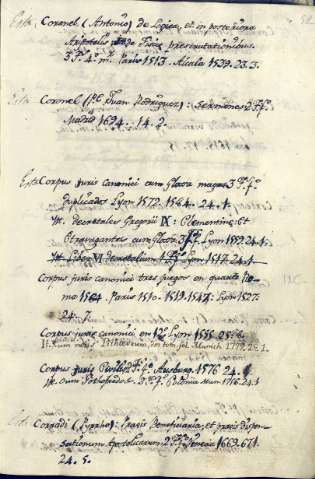 Está Coronel (Antonio) de Logica, et in posteriora
Aristotelis
3 Fº 4. m. Paris 1513. Alcala 1529. 23. 3.
Está Coronel (Pe Juan Rodriguez): Sermones 2 Fº
Madrid 1694. 14. 2.
Está Corpus juris canonici cum glosa magna 3 Fº
duplicados Lyon 1572. 1564. 24. 1.
It. decretales Gregorii IX: Clementinę et
Extravagantes cum glosa. 3 Fº Lyon 1559. 24. 1.
It. Liber VI decretalium Lyon 1517. 24. 1.
Corpus juris canonici tres juegos en quarto
Paris 1510. 1519. Lyon 1527.
24. 7.
Corpus juris canonici en 12º Lyon 1555.
It. cum notis in fol. Munich 24. 1.
Corpus juris Civilis Ausburg. 1576 24. 1
It. cum Colonia 24. 1
Está Corradi (Pyrrho): Praxis Beneficiaria, et praxis dispen-
sationum Apostolicarum 2 Fº Venecia 1669.
24. 5.